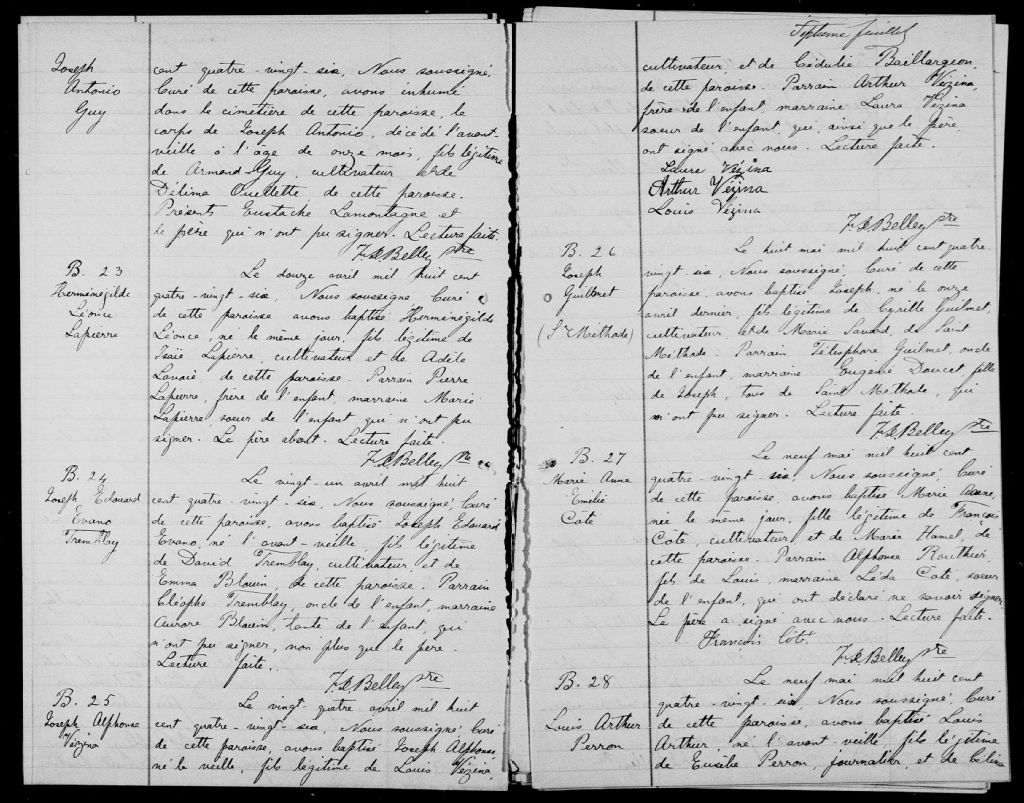 Joseph
Antonio
Guy
cent quatre-vingt-six, Nous soussigné,
Curé de cette paroisse, avons inhumé
dans le cimetière de cette paroisse, le
corps de Joseph Antonio, décédé l'avant-
veille à l'âge de onze mois, fils légitime
de Armand Guy, cultivateur et de
Délima Ouellette de cette paroisse.
Présents Eustache Lamontagne et
le père qui n'ont pu signer. Lecture faite.
F.X. Belley ptre
B. 23
Herménégilde
Léonce
Lapierre
Le douze avril mil huit cent
quatre-vingt-six, Nous soussigné, Curé
de cette paroisse avons baptisé Herménégilde
Léonce, né le même jour, fils légitime de
Isaïe Lapierre, cultivateur et de Adèle
Lavoie, de cette paroisse. Parrain Pierre
Lapierre, frère de l'enfant, marraine Marie
Lapierre soeur de l'enfant qui n'ont pu
signer. Le père absent. Lecture faite.
F.X. Belley ptre
B. 24
Joseph Edouard
Evano
Tremblay
Le vingt-un avril mil huit
cent quatre-vingt-six, Nous soussigné, Curé
de cette paroisse, avons baptisé Joseph Edouard
Evano, né l'avant-veille, fils légitime
de David Tremblay, cultivateur et de
Emma Blouin, de cette paroisse. Parrain
Cléophe Tremblay, oncle de l'enfant, marraine
Aurore Blouin, tante de l'enfant, qui
n'ont pu signer, non plus que le père.
Lecture faite.
F.X. Belley ptre
B. 25
Joseph Alphonse
Vézina
Le vingt-quatre avril mil huit
cent quatre-vingt-six, Nous soussigné Curé
de cette paroisse, avons baptisé Joseph Alphonse
né la veille, fils légitime de Louis Vézina,
Septième feuillet
cultivateur, et de Cédulie Baillargeon,
de cette paroisse. Parrain Arthur Vézina,
frère de l'enfant marraine Laura Vézina
soeur de l'enfant, qui, ainsi que le père
ont signé avec nous. Lecture faite.
Laura Vézina
Arthur Vézina
Louis Vézina
F.X. Belley ptre
B. 26
Joseph
Guilmet
(St Méthode)
Le huit mai mil huit cent quatre-
vingt-six, Nous soussigné, Curé de cette
paroisse, avons baptisé Joseph, né le onze
avril dernier, fils légitime de Cyrille Guilmet,
cultivateur et de Marie Savard, de Saint
Méthode. Parrain Télesphore Guilmet, oncle
de l'enfant, marraine Eugénie Doucet fille
de Joseph, tous de Saint Méthode, qui
n'ont pu signer. Lecture faite.
F.X. Belley ptre
B. 27
Marie Anne
Emilie
Côté
Le neuf mai mil huit cent
quatre-vingt-six, Nous soussigné, Curé
de cette paroisse, avons baptisé Marie Anne,
née le même jour, fille légitime de François
Coté, cultivateur et de Marie Hamel, de
cette paroisse. Parrain Alphonse Routhier,
fils de Louis, marraine Léda Coté, soeur
de l'enfant, qui ont déclaré ne savoir signer.
Le père a signé avec nous. Lecture faite.
François Côté
F.X. Belley ptre
B. 28
Louis Arthur
Perron
Le neuf mai mil huit cent
quatre-vingt-six, Nous soussigné, Curé
de cette paroisse, avons baptisé Louis
Arthur, né l'avant-veille, fils légitime
de Eusèbe Perron, journalier, et de Célina